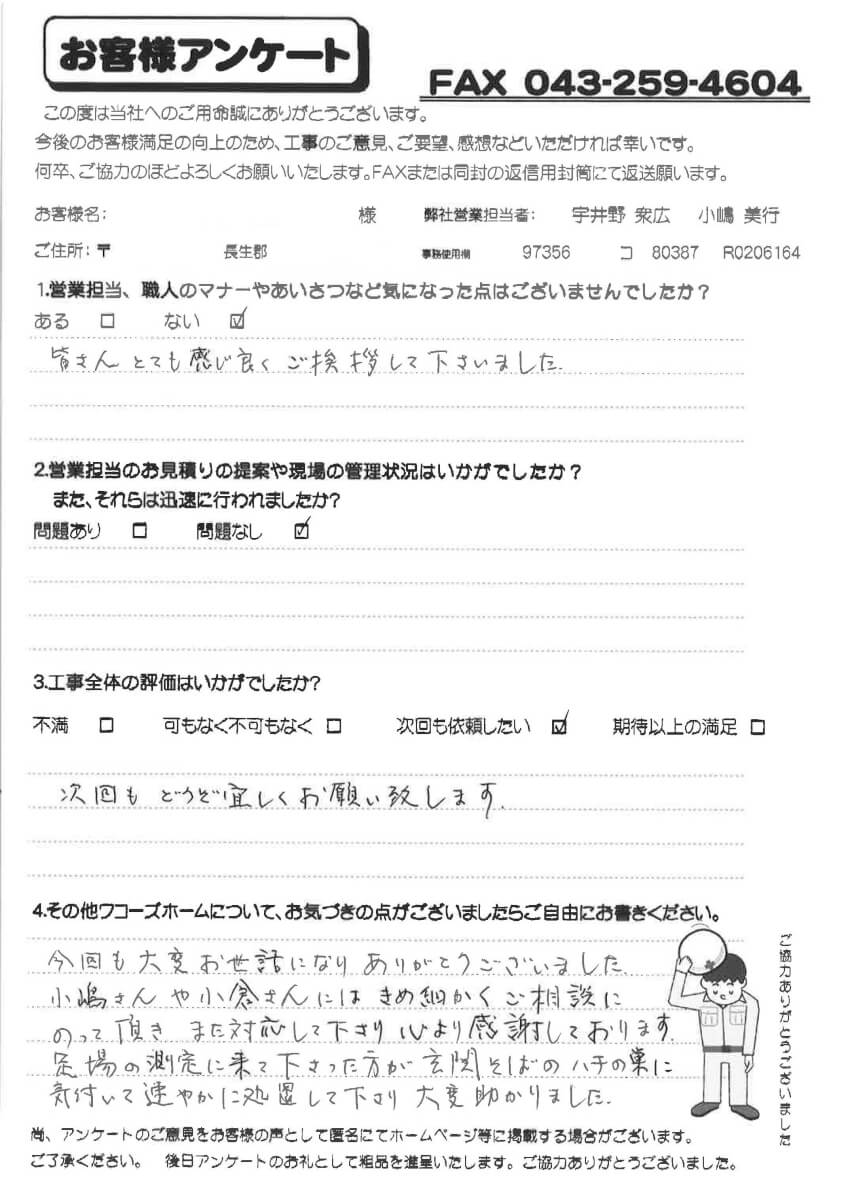 お客様アンケート
FAX 043-259-4604
この度は当社へのご用命誠にありがとうございます。
今後のお客様満足の向上のため、工事のご意見、ご要望、感想などいただければ幸いです。
何卒、ご協力のほどよろしくお願いいたします。FAXまたは同封の返信用封筒にて返送願います。
お客様名： 様 弊社営業担当者： 宇井野 衆広 小嶋 美行
ご住所：〒 長生郡 事務使用欄 97356 コ 80387 R0206164
1.営業担当、職人のマナーやあいさつなど気になった点はございませんでしたか？
ある □ ない ☑
皆さん とても 感じ良く ご挨拶して下さいました.
2.営業担当のお見積りの提案や現場の管理状況はいかがでしたか？
また、それらは迅速に行われましたか？
問題あり □ 問題なし ☑
3.工事全体の評価はいかがでしたか？
不満 □ 可もなく不可もなく □ 次回も依頼したい ☑ 期待以上の満足 □
次回も どうぞ宜しくお願い致します.
4.その他ワコーズホームについて、お気づきの点がございましたらご自由にお書きください。
今回も大変お世話になり ありがとうございました.
小嶋さんや小倉さんには きめ細かくご相談に
のって頂き また対応して下さり 心より感謝しております.
足場の測定に来て下さった方が玄関そばのハチの巣に
気付いて速やかに処置して下さり 大変助かりました.
ご協力ありがとうございました
尚、アンケートのご意見をお客様の声として匿名にてホームページ等に掲載する場合がございます。
ご了承ください。 後日アンケートのお礼として粗品を進呈いたします。ご協力ありがとうございました。